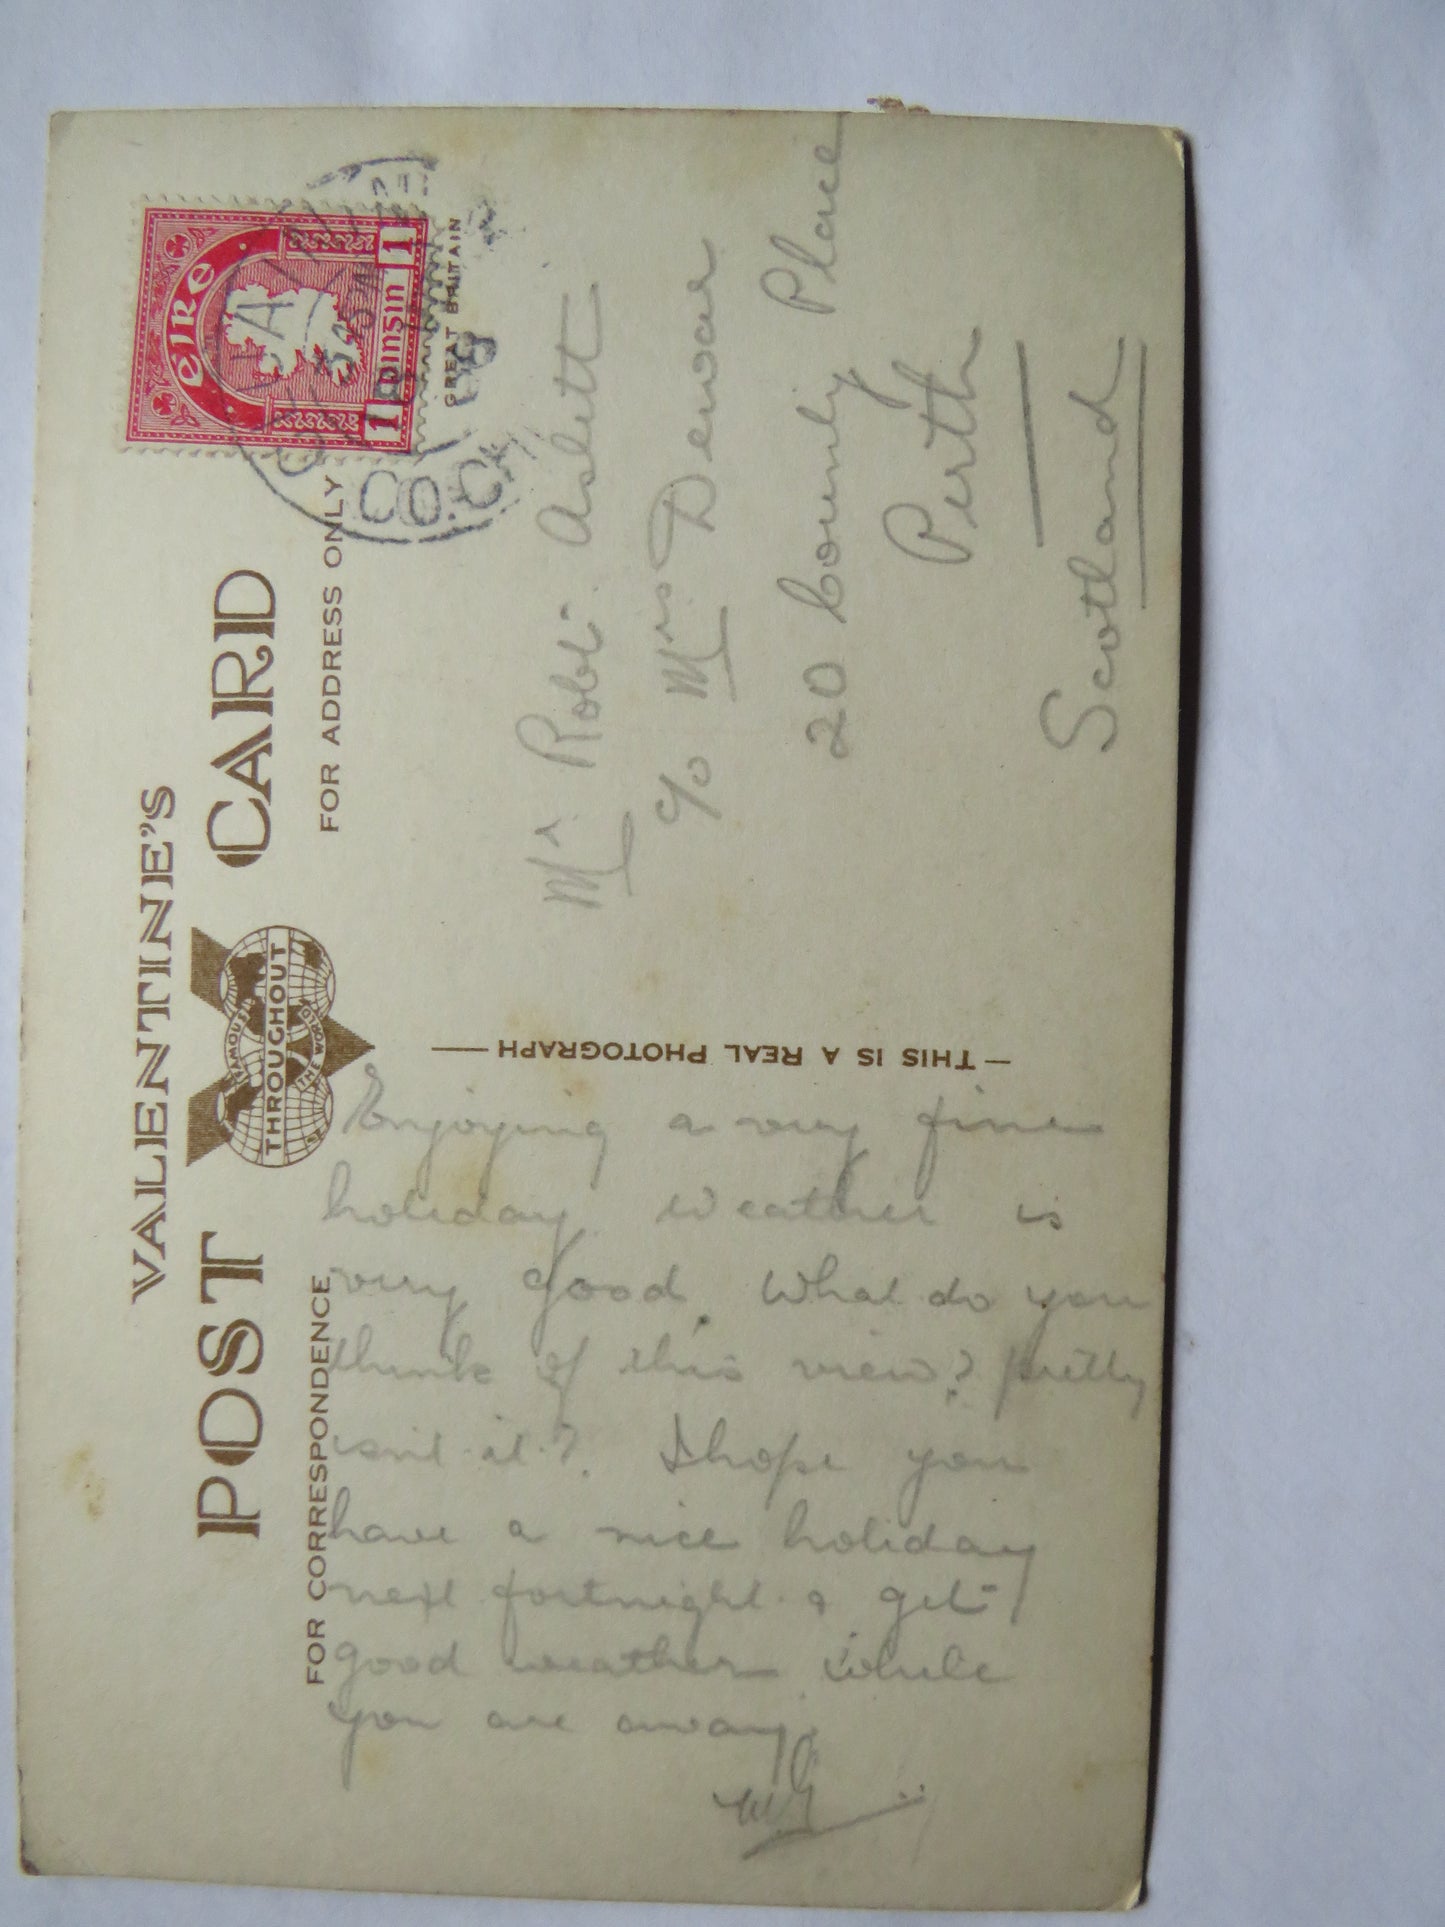 VALENTINE'S
POST CARD
FAMOUS
THROUGHOUT
THE WORLD
FOR CORRESPONDENCE
FOR ADDRESS ONLY
GREAT BRITAIN
éIRe
1 pINSIN 1
CO. C
THIS IS A REAL PHOTOGRAPH
Enjoying a very fine
holiday weather is
very good. What do you
think of this view? pretty
isn't it? I hope you
have a nice holiday
next fortnight & get
good weather while
you are away.
Mr Robt. Aslett
c/o Mrs Dewar
20 County Place
Perth
Scotland